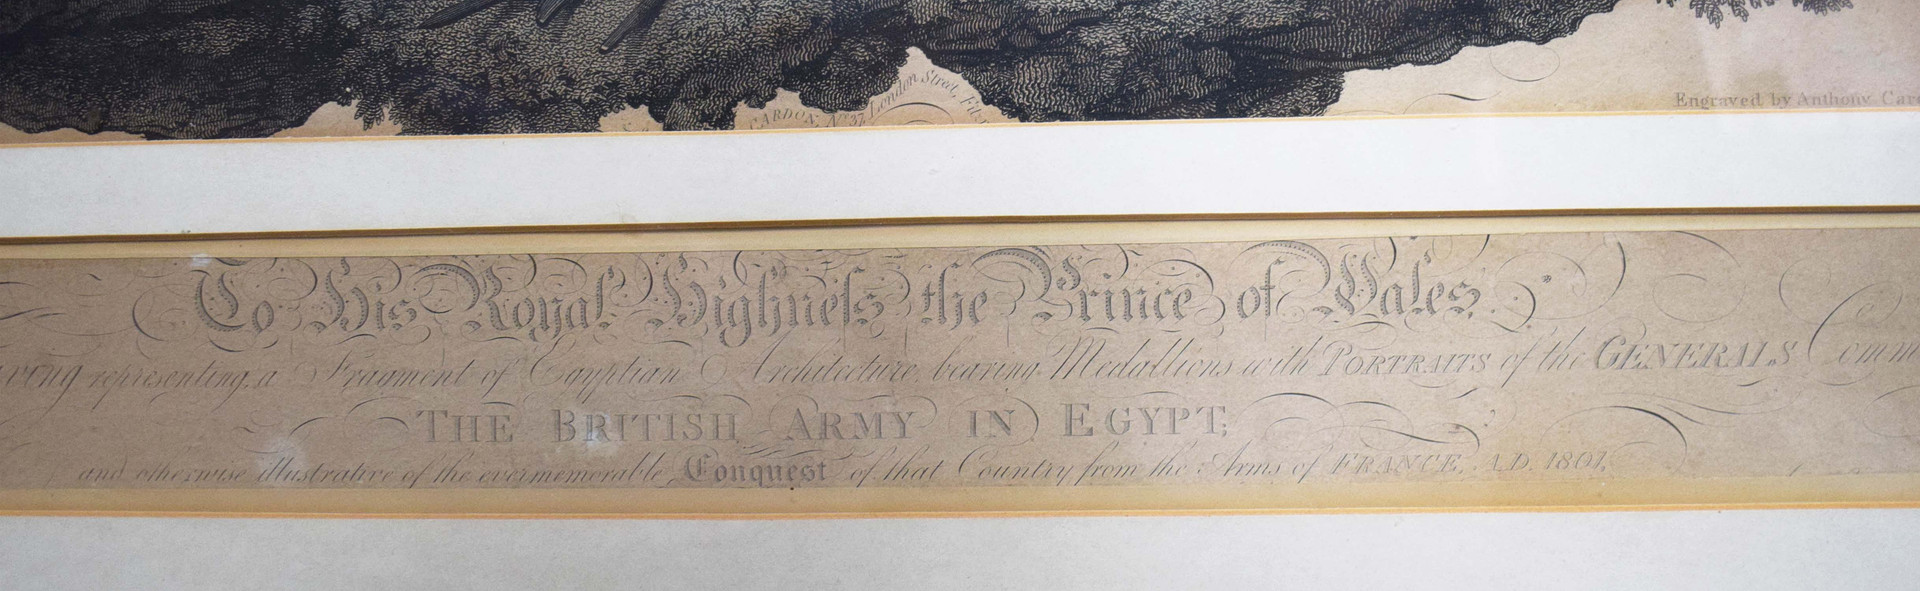 CARDON, No. 37, London Street, Fitz
Engraved by Anthony Car
To His Royal Highneſs the Prince of Wales,
representing a Fragment of Egyptian Architecture, bearing Medallions with PORTRAITS of the GENERALS Comm
THE BRITISH ARMY IN EGYPT;
and otherwise illustrative of the evermemorable Conquest of that Country from the Arms of FRANCE, A.D. 1801.